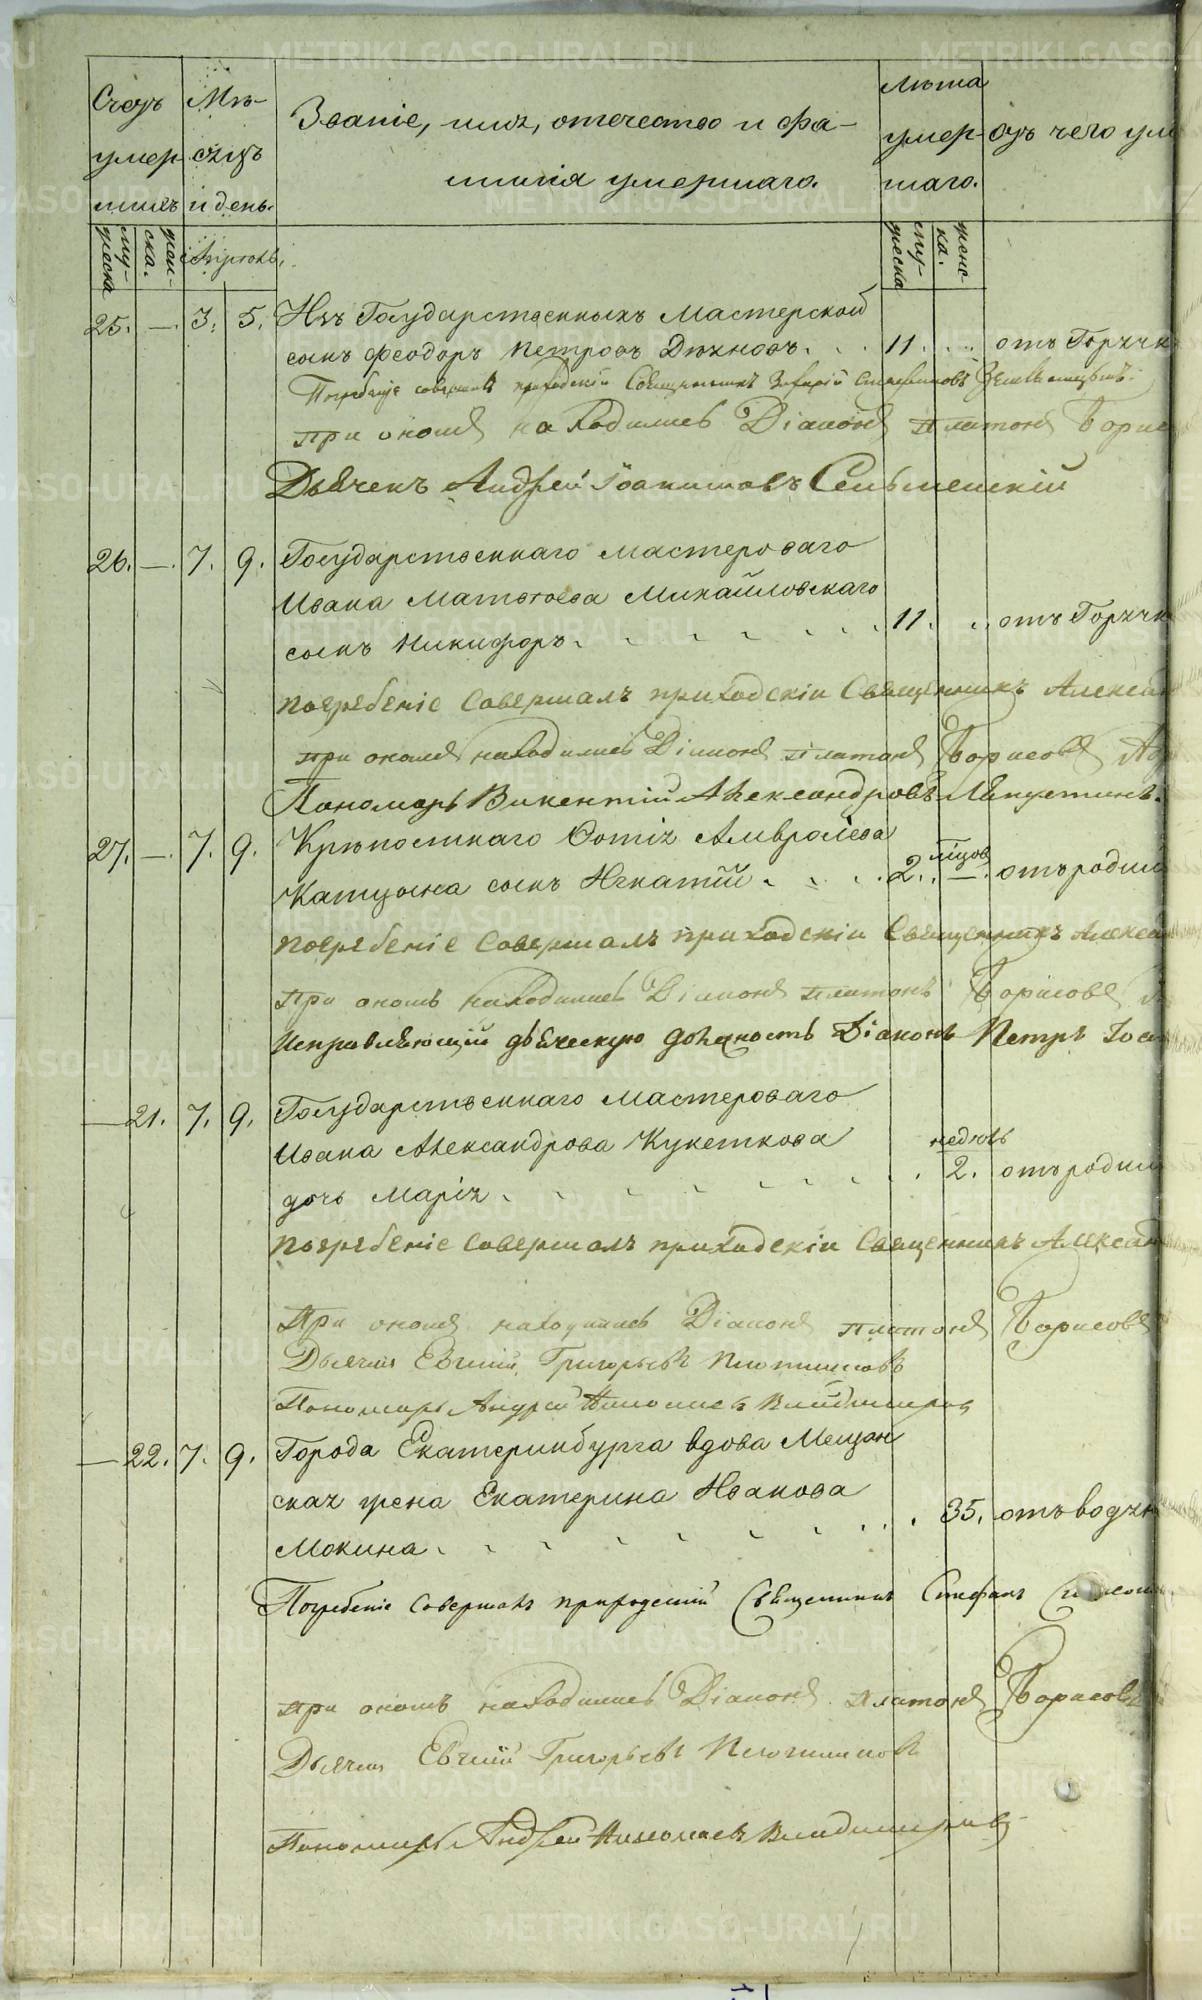 Счетъ умер- шихъ
Мѣ- сяцъ и день.
Званіе, имя, отечество и фа-
милія умершаго.
Лѣта умер- шаго.
отъ чего ум
муже- ска
жен- ска.
Апрѣль.
муже- ска
женс- ка.
25. — 3. 5. Изъ Государственныхъ Мастерской
сынъ Феодоръ Петровъ 11. отъ Горячк
Погребеніе совершалъ приходскій Священникъ
При ономъ находились Діаконъ Платонъ Борис
Дьячекъ Андрей Іоакимовъ Сельменскій
26. — 7. 9. Государственнаго мастероваго
Ивана Матвѣева Михайловскаго
сынъ Никифоръ. 11. отъ Горячк
погребеніе совершалъ приходскіи Священникъ Алексан
при ономъ находились Діаконъ Платонъ Борисовъ
Пономарь Викентій Александровъ
27. — 7. 9. Крѣпостнаго Фотія Амвросіева
сынъ Игнатій 2. мѣцов — отъ родим
погребеніе совершалъ приходскіи Священникъ Алекса
При ономъ находились Діаконъ Платонъ Борисовъ
Исправляющій дьяческую должность Діаконъ Петръ
— 21. 7. 9. Государственнаго мастероваго
Ивана Александрова
дочь Марія недѣль 2. отъ родим
погребеніе совершалъ приходскіи Священникъ Алексан
При ономъ находились Діаконъ Платонъ Борисовъ
Дьячекъ Евгеній Григорьевъ Плотниковъ
Пономарь Андрей Николаевъ Владимировъ
— 22. 7. 9. Города Екатеринбурга вдова Мещан
ская жена Екатерина Иванова
Мокина 35. отъ водян
Погребеніе совершалъ приходскій Священникъ Стефанъ
при ономъ находились Діаконъ Платонъ Борисовъ
Дьячекъ Евгеній Григорьевъ Плотниковъ
Пономарь Андрей Николаевъ Владимировъ
METRIKI.GASO-URAL.RU